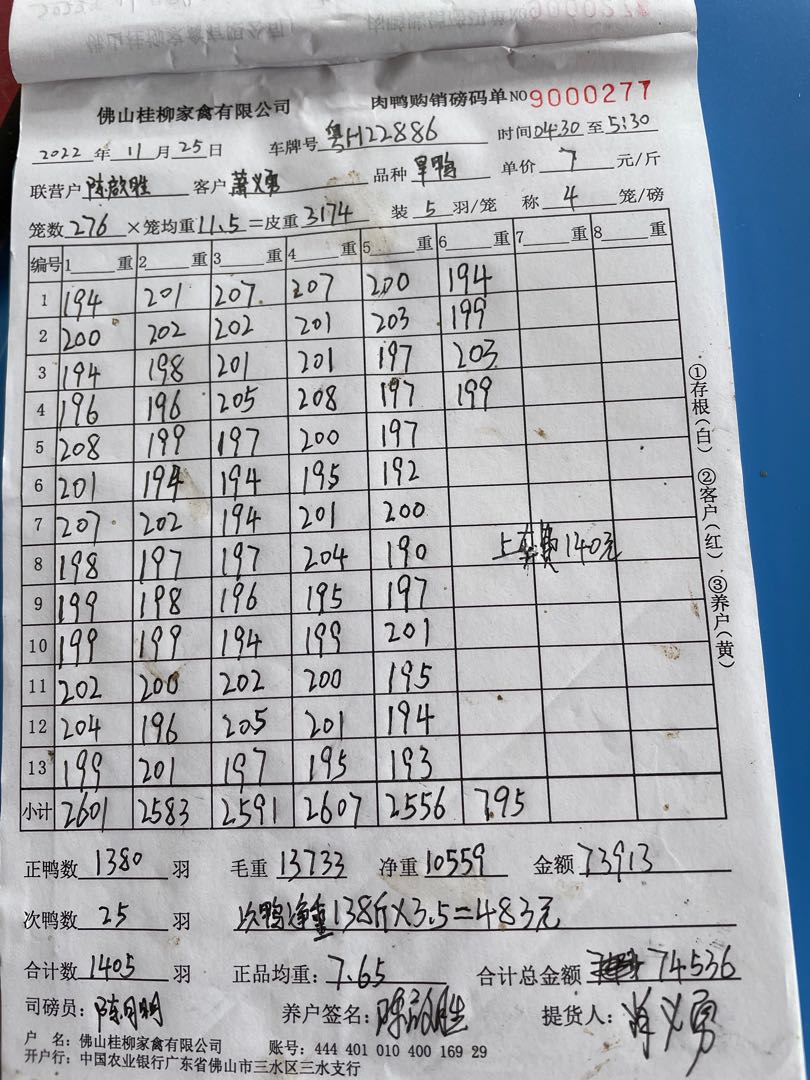 佛山桂柳家禽有限公司 肉鸭购销磅码单 NO 9000277
2022 年 11 月 25 日 车牌号 粤H22886 时间 04:30 至 5:30
联营户 陈啟胜 客户 萧义勇 品种 旱鸭 单价 7 元/斤
笼数 276 ×笼均重 11.5 =皮重 3174 装 5 羽/笼 称 4 笼/磅
编号 1 重 2 重 3 重 4 重 5 重 6 重 7 重 8 重
1 194 201 207 207 200 194
2 200 202 202 201 203 199
3 194 198 201 201 197 203
4 196 196 205 208 197 199
5 208 199 197 200 197
6 201 194 194 195 192
7 207 202 194 201 200
8 198 197 197 204 190 上车费140元
9 199 198 196 195 197
10 199 199 194 199 201
11 202 200 202 200 195
12 204 196 205 201 194
13 199 201 197 195 193
小计 2601 2583 2591 2607 2556 795
正鸭数 1380 羽 毛重 13733 净重 10559 金额 73913
次鸭数 25 羽 次鸭净重138斤×3.5=483元
合计数 1405 羽 正品均重: 7.65 合计总金额 74536
司磅员: 陈月明 养户签名: 陈啟胜 提货人: 萧义勇
户 名: 佛山桂柳家禽有限公司 账号: 444 401 010 400 169 29
开户行: 中国农业银行广东省佛山市三水区三水支行
①存根(白) ②客户(红) ③养户(黄)